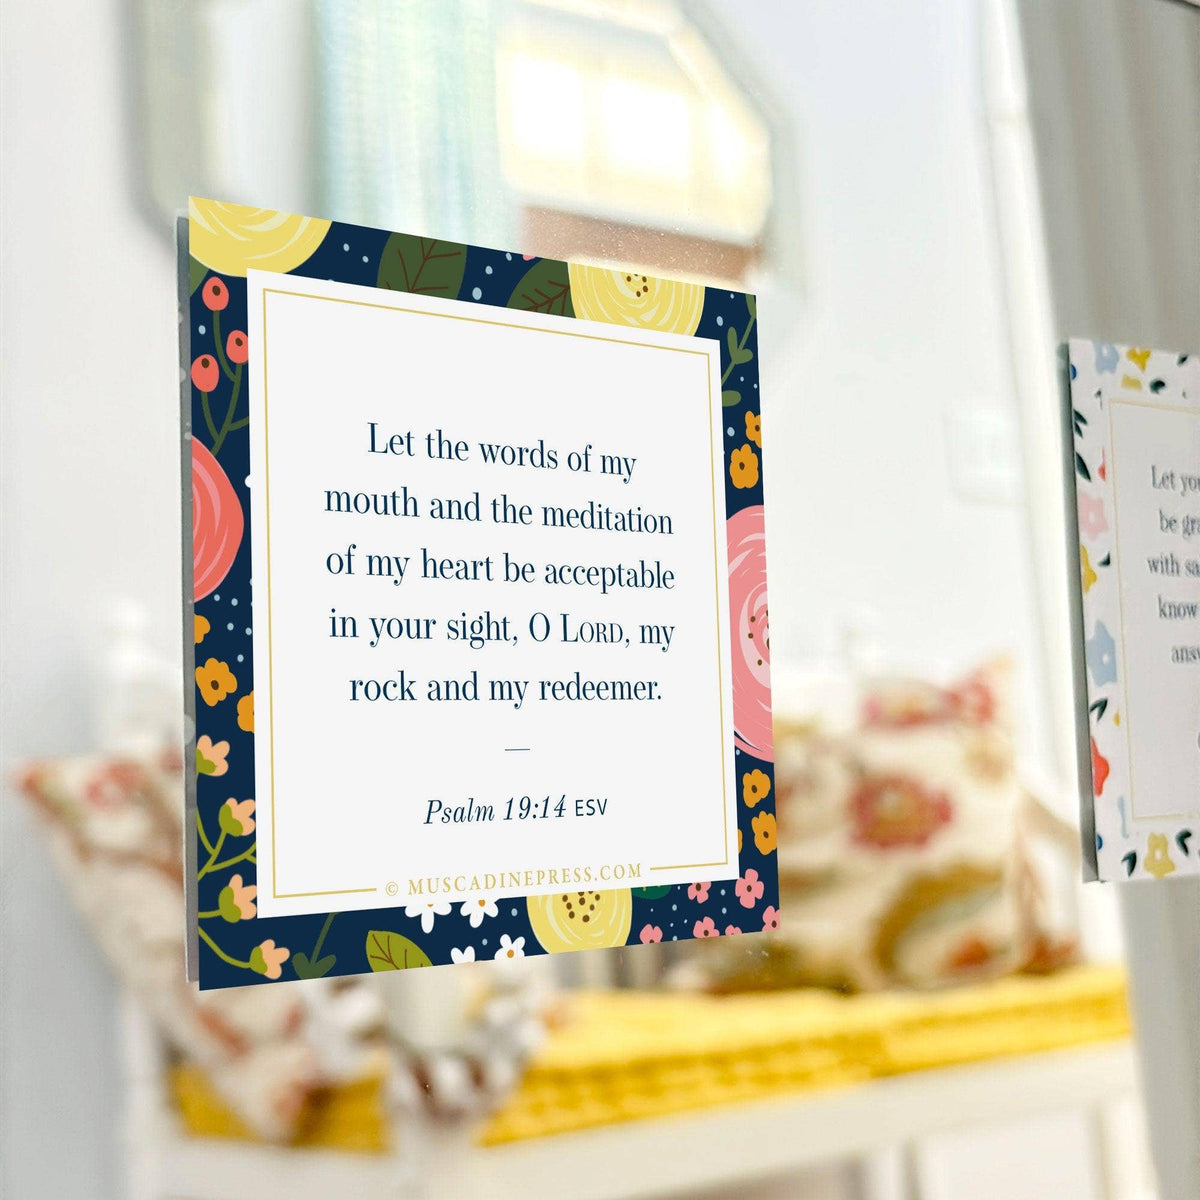 Let the words of my
mouth and the meditation
of my heart be acceptable
in your sight, O LORD, my
rock and my redeemer.
—
Psalm 19:14 ESV
© MUSCADINEPRESS.COM
Let
be
with
know